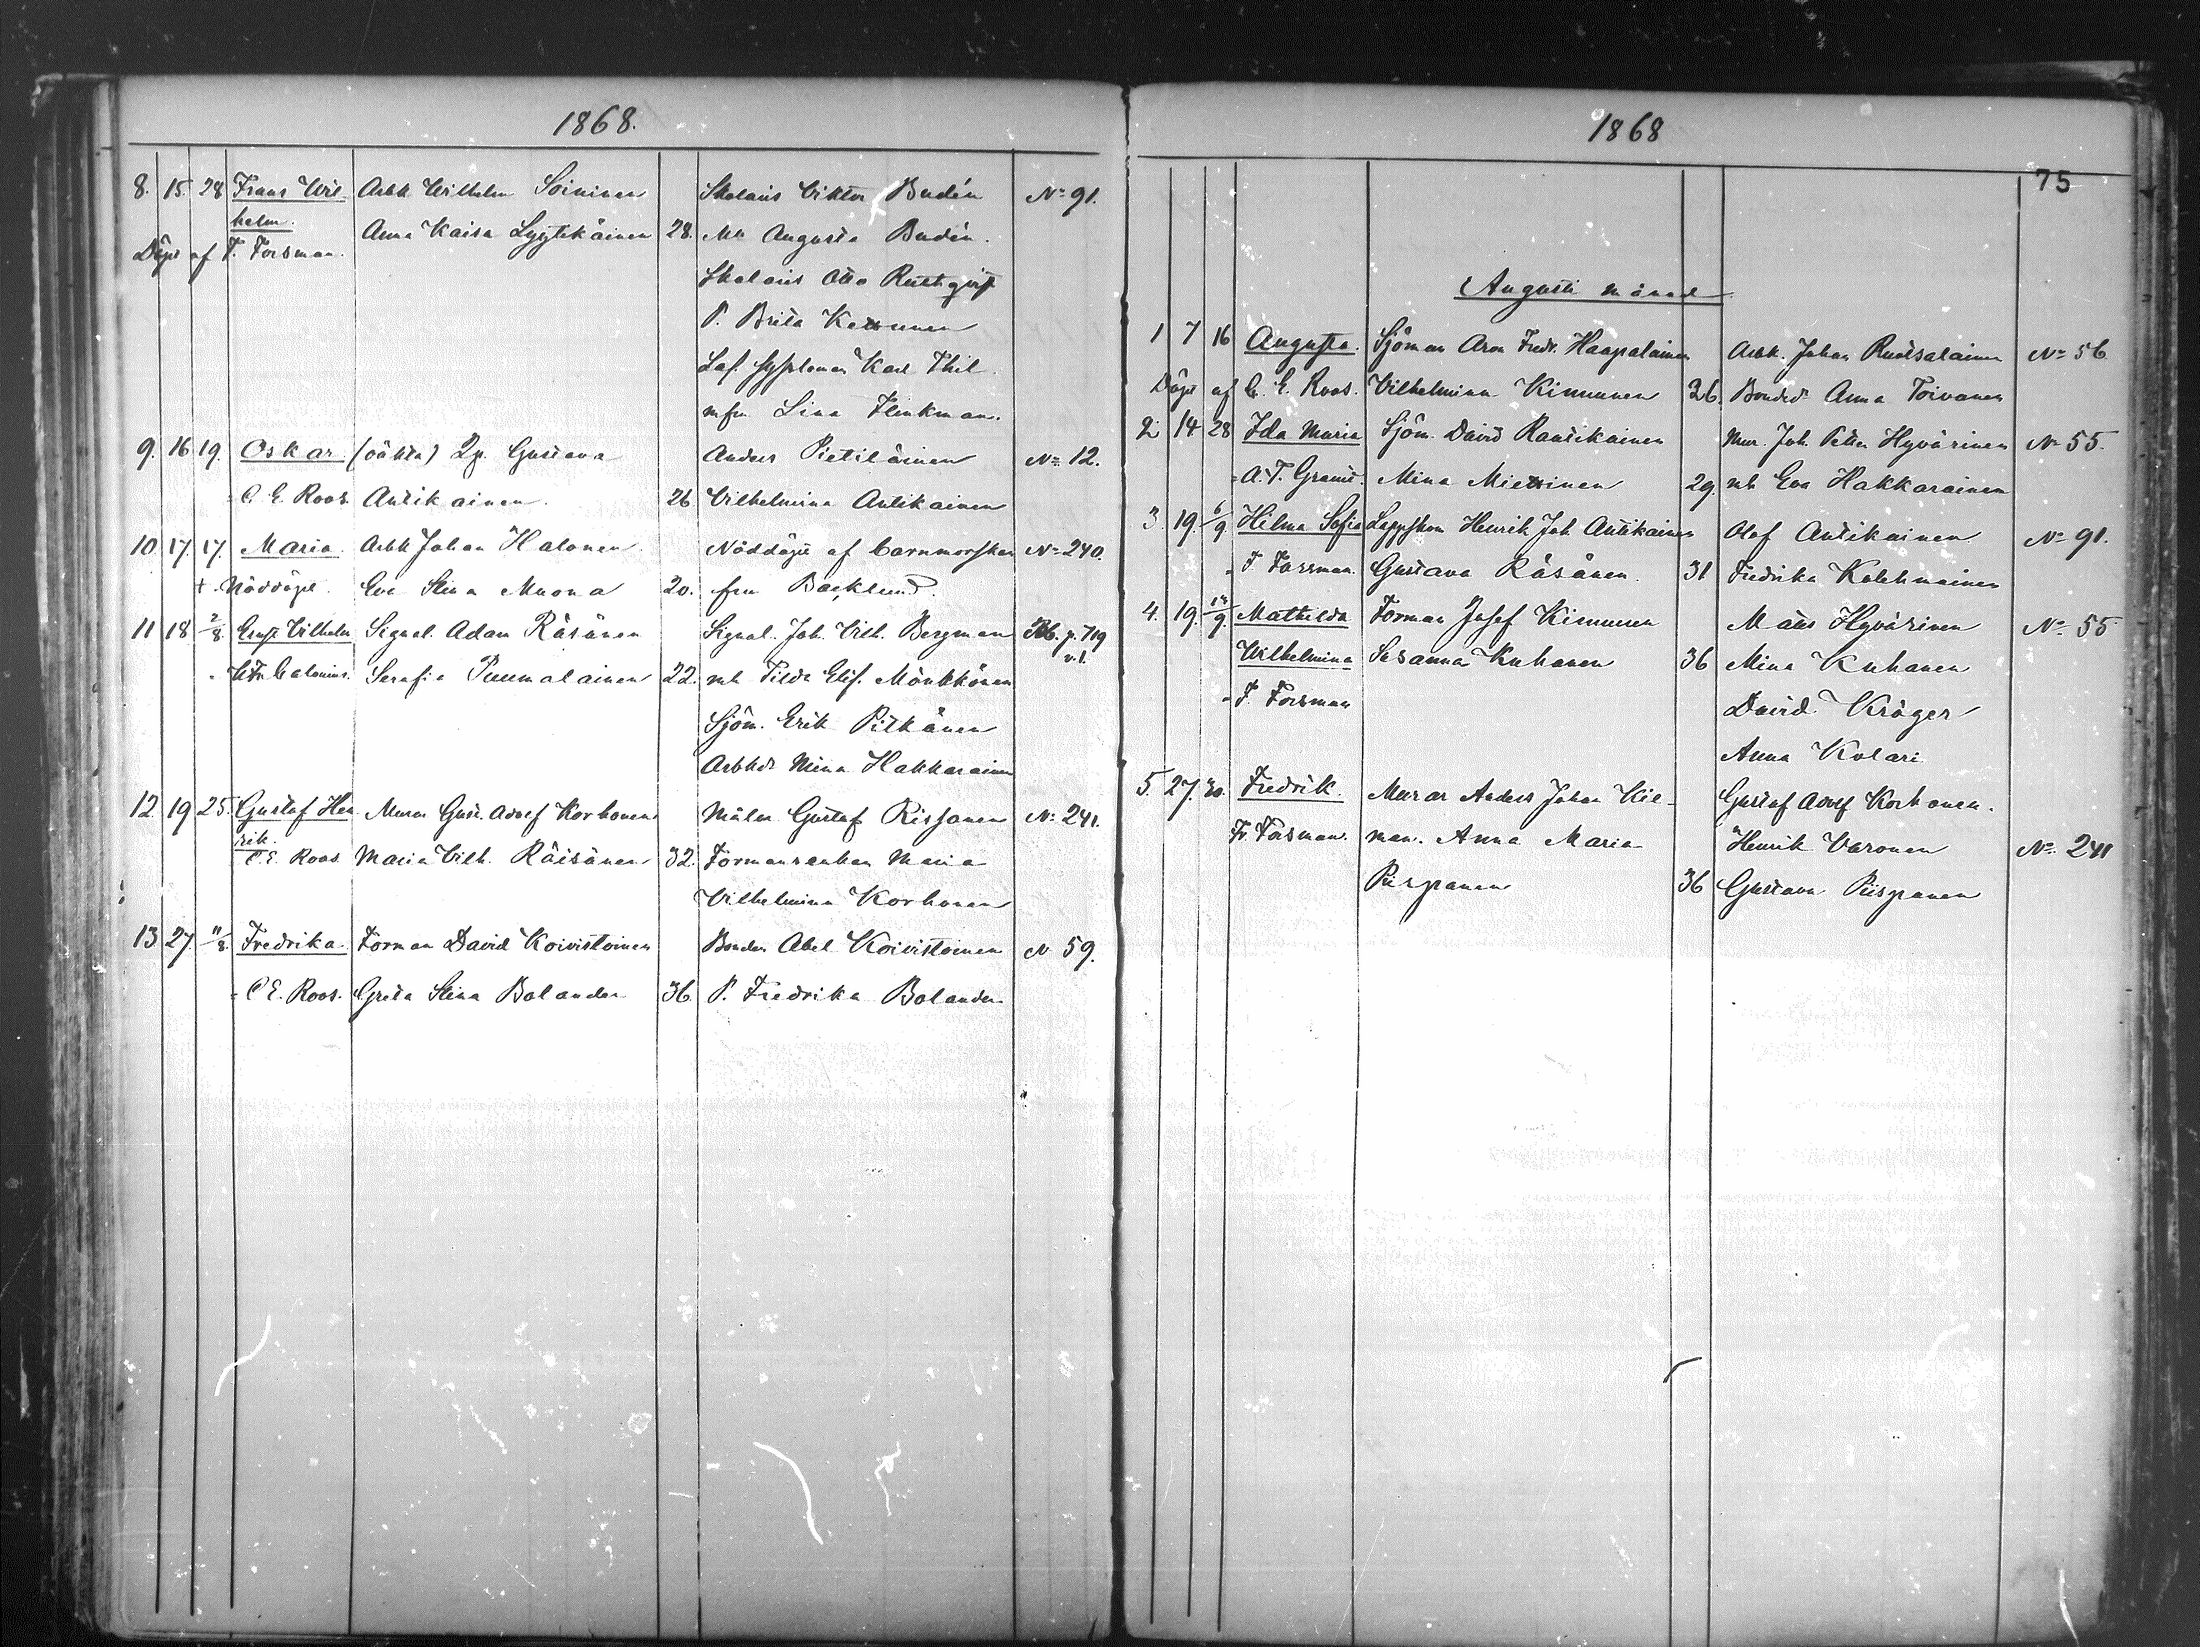 1868.
8. 15. 28 Frans Wil- Arbk Wilhelm Soininen Skolaris Viktor Budén No 91.
helm. Anna Kaisa Lyytikäinen 28. Augusta Budén.
Döpt af F. Forsman.
Skolaris Otto
P. Brita
Karl Thil
Lina Flinkman.
9. 16 19. Oskar. (oäkta) Gustava Anders Pietiläinen No 12.
C. E. Roos Antikainen. 26 Vilhelmina Antikainen
10 17. 17. Maria. Arbk Johan Halonen. Nöddöpt af barnmorskan No 240.
+ Nöddöpt. Eva Stina Muona 20. fru Backlund.
11 18 2/8 Ernst Vilhelm Signal. Adam Räsänen Signal. Joh. Vilh. Bergman p. 719
v. 1.
Serafia Puumalainen 22. Tilda Elis. Mönkkönen
Sjöm. Erik Pitkänen
Mina Hakkarainen
12 19 25. Gustaf Hen Gust. Adolf Korhonen Målar Gustaf Rissanen No 241.
rik.
C. E. Roos Maria Vilh. Räisänen 32. Formansenkan Maria
Vilhelmina Korhonen
13 27. 11/8 Fredrika. Forman David Koivistoinen Bonden Abel Koivistoinen N 59.
C. E. Roos. Greta Stina Bolander 36 P. Fredrika Bolander
1868
75
Augusti månad
1 7 16 Augusta. Sjöman Aron Fredr. Haapalainen Arbk. Johan Ruotsalainen No 56
Döpt af C. E. Roos. Vilhelmina Kinnunen 36. Anna Toivanen
2 14 28 Ida Maria Sjöm. David Rautikainen Mur. Joh. Petter Hyvärinen No 55.
Mina Miettinen 29. Eva Hakkarainen
3. 19. 6/9 Hilma Sofia Henrik Joh. Antikainen Olof Antikainen No 91.
F. Forsman. Gustava Räsänen. 31 Fredrika Kolehmainen
4. 19. /9 Mathilda Forman Josef Kinnunen Måns Hyvärinen No 55
Wilhelmina Susanna Kuhanen 36 Mina Kuhanen
F. Forsman David Kröger
Anna Kolari
5 27. 30. Fredrik. Murar Anders Johan Kie- Gustaf Adolf Korhonen.
Fr. Forsman. man. Anna Maria Henrik Varonen No 241
Piispanen 36 Gustava Piispanen